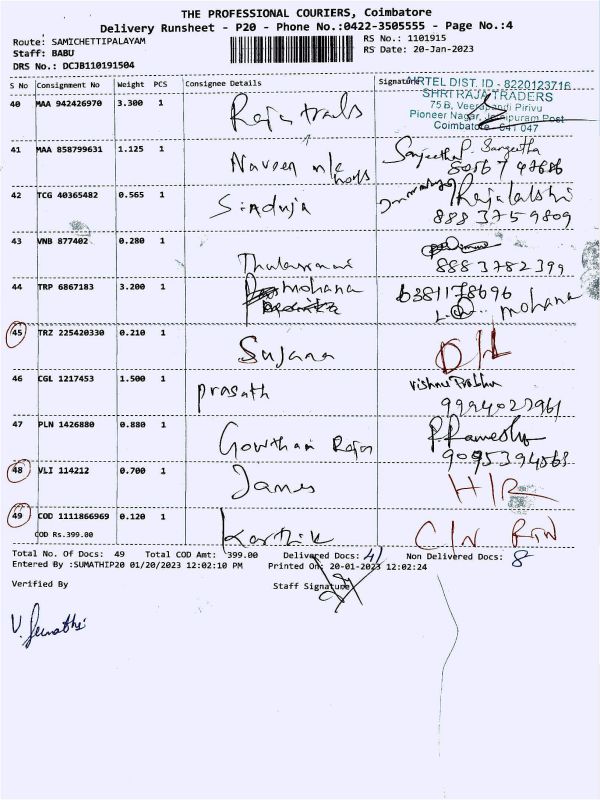 THE PROFESSIONAL COURIERS, Coimbatore
Delivery Runsheet - P20 - Phone No.:0422-3505555 - Page No.:4
Route: SAMICHETTIPALAYAM
RS No.: 1101915
Staff: BABU
RS Date: 20-Jan-2023
DRS No.: DCJB110191504
S No Consignment No Weight PCS Consignee Details Signature
AIRTEL DIST. ID - 8220123716
SHRI RAJA TRADERS
75 B, Veerapandi Pirivu
Pioneer Nagar, Post
Coimbatore - 641 047
40 MAA 942426970 3.300 1 Raja
41 MAA 858799631 1.125 1 Naveen Sangeetha P. Sangeetha
42 TCG 40365482 0.565 1 Sinduja Rajalakshi
888 3759809
43 VNB 877402 0.280 1
8883782399
44 TRP 6867183 3.200 1 mohana 6381178696
mohana
45 TRZ 225420330 0.210 1 Sujana D/L
46 CGL 1217453 1.500 1 Prasath Vishnu Prabhu
9994027961
47 PLN 1426880 0.880 1 Gowtham Raja P. Ramesh
9095394568
48 VLI 114212 0.700 1 James H/R
49 COD 1111866969 0.120 1 Karthik C/N RTN
COD Rs.399.00
Total No. Of Docs: 49 Total COD Amt: 399.00 Delivered Docs: 41 Non Delivered Docs: 8
Entered By :SUMATHIP20 01/20/2023 12:02:10 PM Printed On: 20-01-2023 12:02:24
Verified By Staff Signature
V. Sumathi